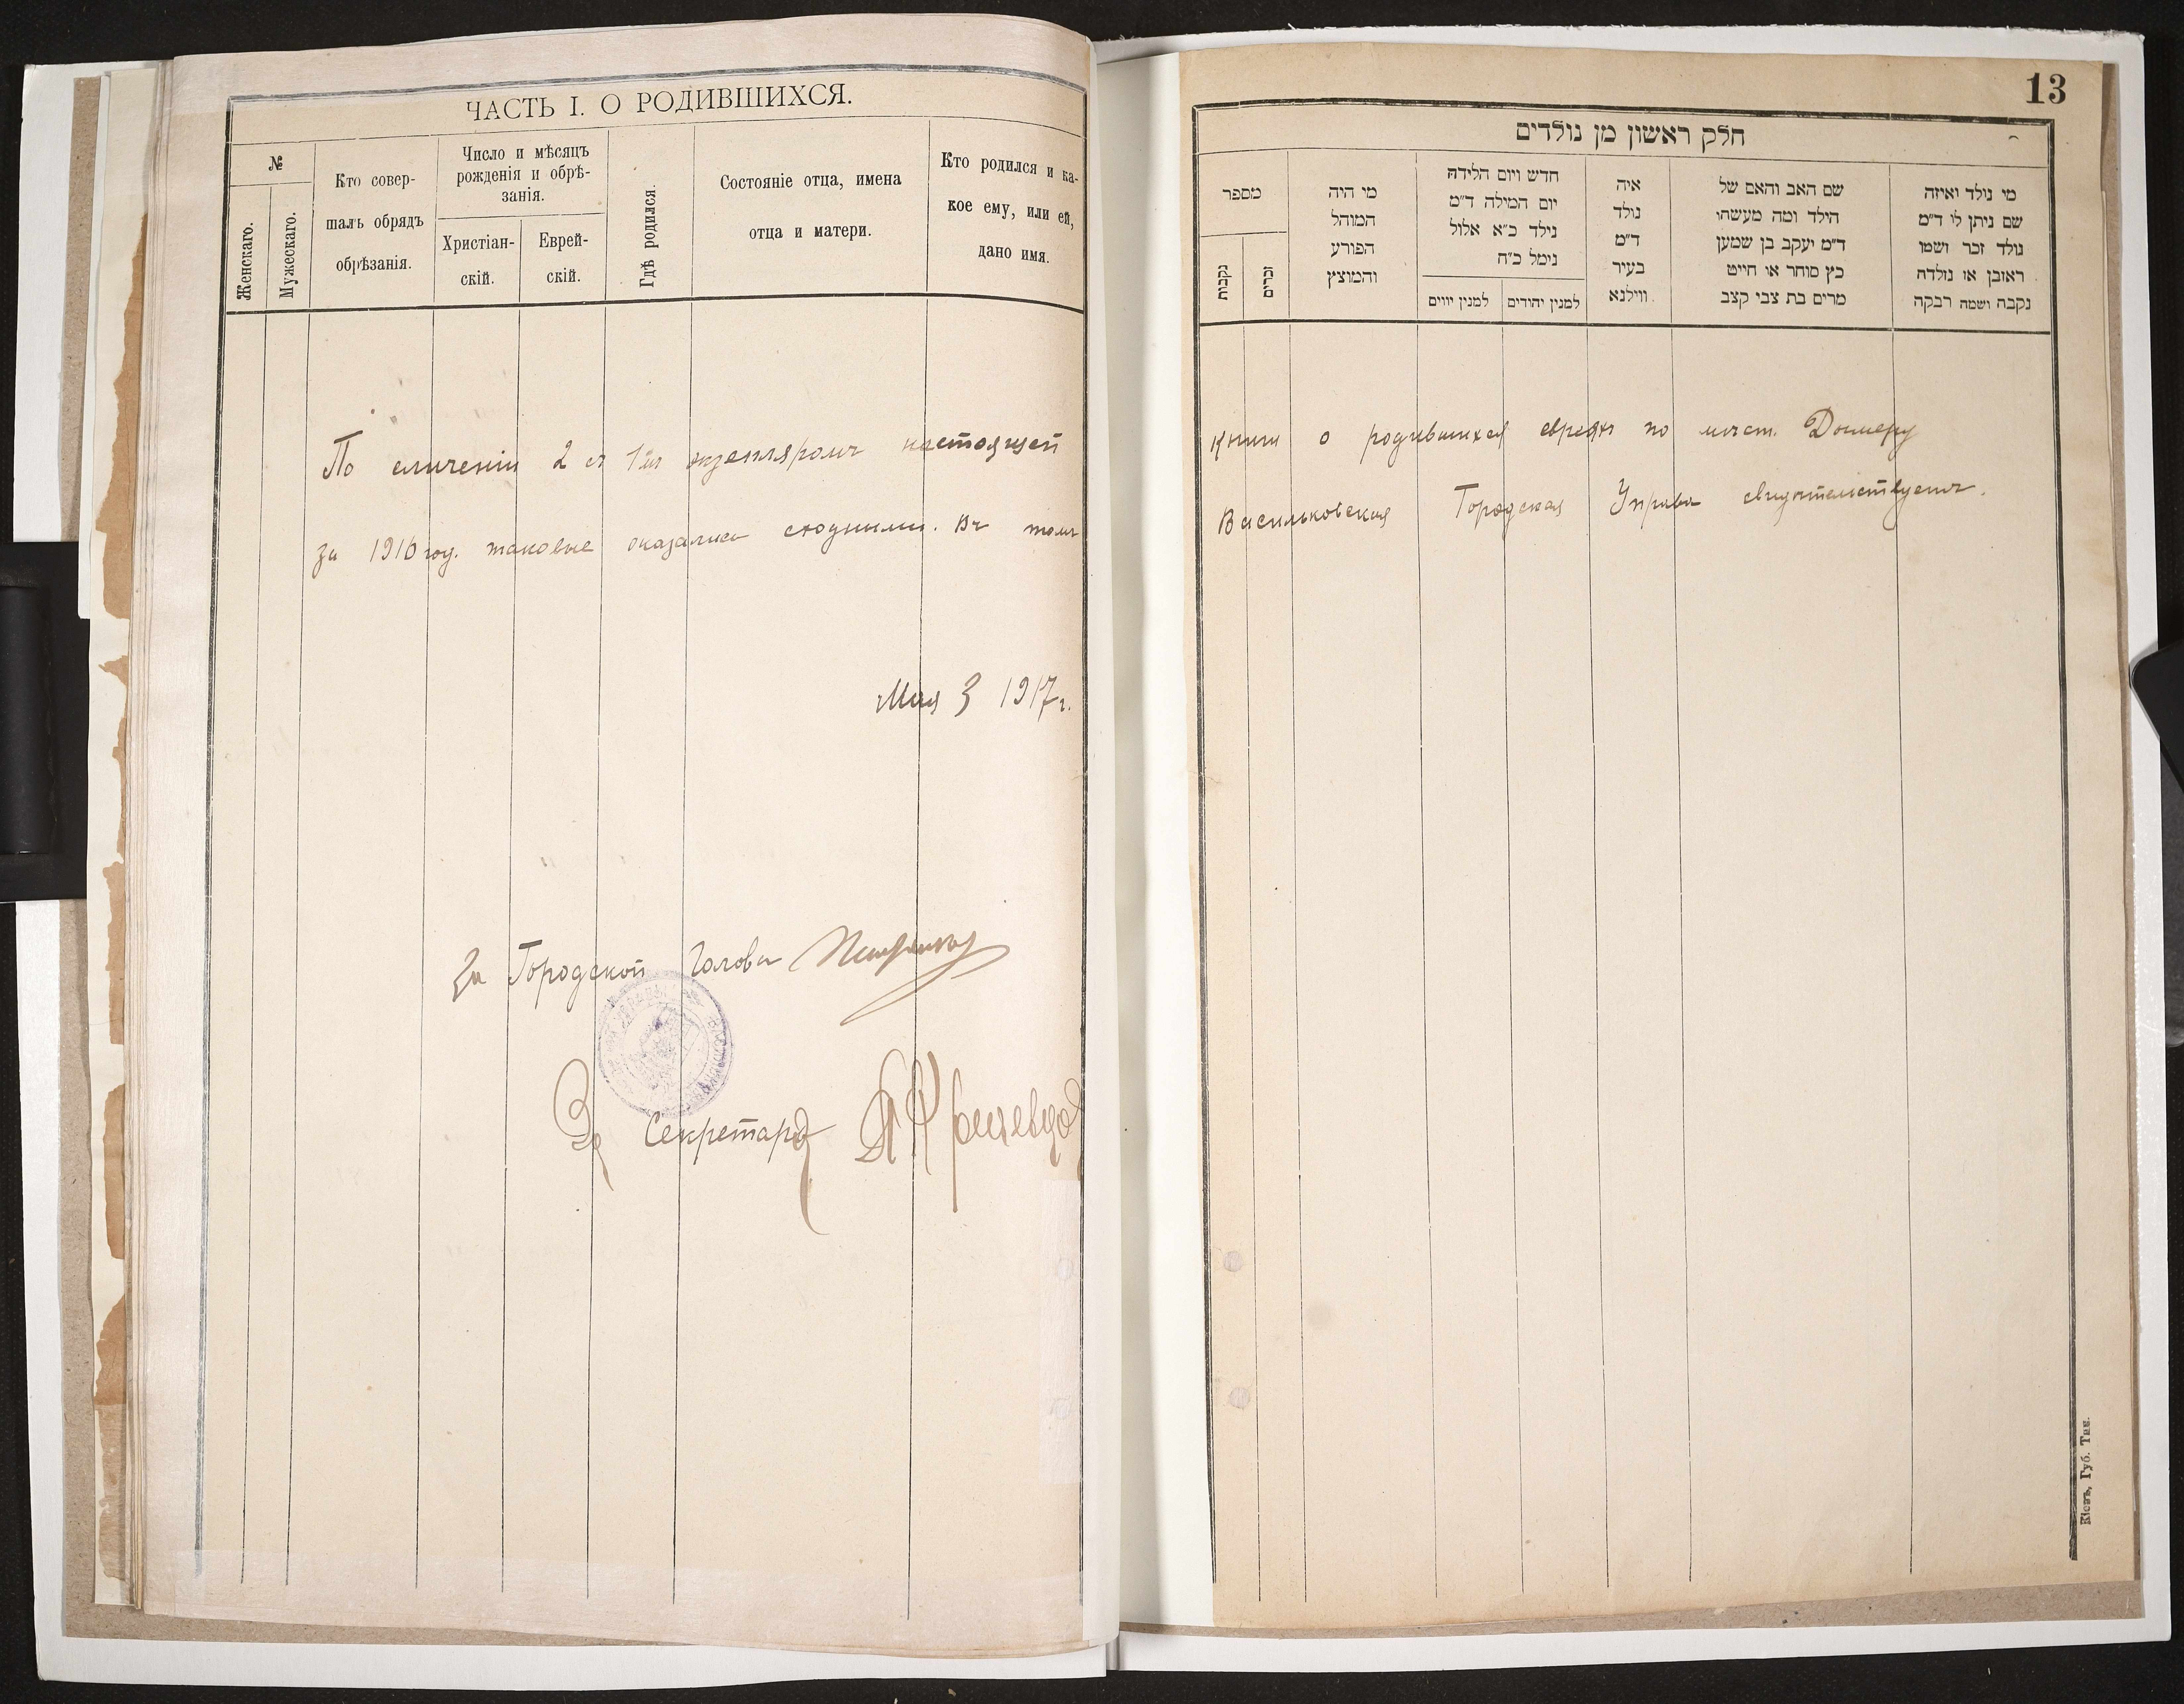 ЧАСТЬ I. О РОДИВШИХСЯ.
№
Женскаго.
Мужескаго.
Кто совер-
шалъ обрядъ
обрѣзанія.
Число и мѣсяцъ
рожденія и обрѣ-
занія.
Христіан-
скій.
Еврей-
скій.
Гдѣ родился.
Состояніе отца, имена
отца и матери.
Кто родился и ка-
кое ему, или ей,
дано имя.
По сличеніи 2 съ 1м экземпляромъ настоящей
за 1916 год. таковые оказались сходными. Въ томъ
Мая 3 1917 г.
За Городской Голова
За Секретаря
13
חלק ראשון מן נולדים
מספר
נקבות
זכרים
מי היה
המוהל
הפורע
והמוצץ
חדש ויום הלידה
יום המילה ד״מ
נילד כ״א אלול
נימל כ״ח
למנין יווים
למנין יהודים
איה
נולד
ד״מ
בעיר
ווילנא
שם האב והאם של
הילד ומה מעשהו
ד״מ יעקב בן שמען
כץ סוחר או חייט
מרים בת צבי קצב
מי נולד ואיזה
שם ניתן לו ד״מ
נולד זכר ושמו
ראובן או נולדה
נקבה ושמה רבקה
книги о родившихся евреях по мѣст. Дымеру
Васильковская Городская Управа свидѣтельствуетъ.
Кіевъ, Губ. Тип.